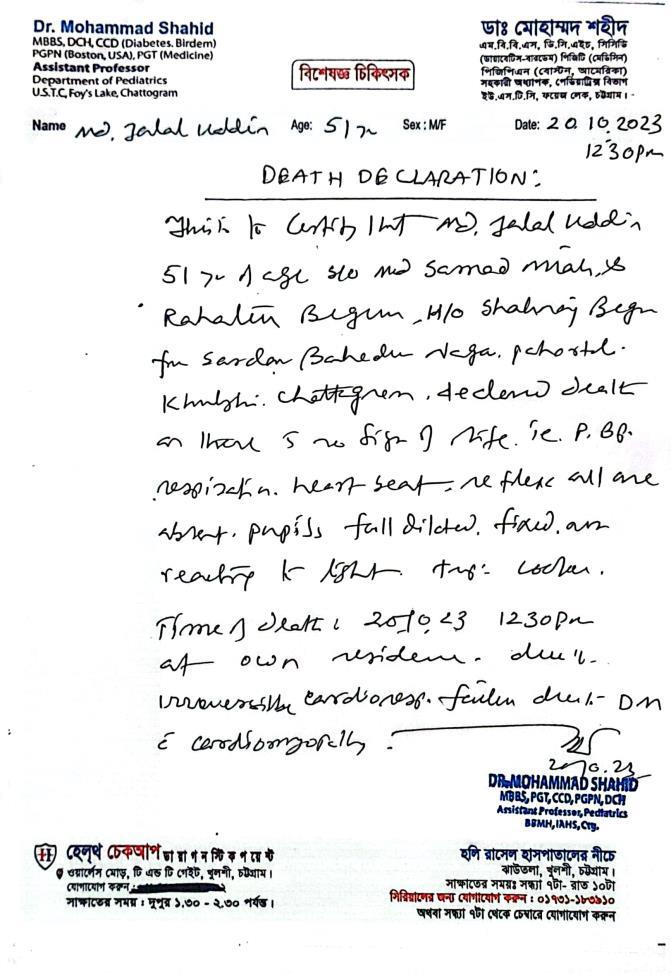 Dr. Mohammad Shahid
MBBS, DCH, CCD (Diabetes. Birdem)
PGPN (Boston, USA), PGT (Medicine)
Assistant Professor
Department of Pediatrics
U.S.T.C, Foy's Lake, Chattogram
বিশেষজ্ঞ চিকিৎসক
ডাঃ মোহাম্মদ শহীদ
এম.বি.বি.এস, ডি.সি.এইচ, সিসিডি
(ডায়াবেটিস-বারডেম) পিজিটি (মেডিসিন)
পিজিপিএন (বোস্টন, আমেরিকা)
সহকারী অধ্যাপক, পেডিয়াট্রিক্স বিভাগ
ইউ.এস.টি.সি, ফয়েজ লেক, চট্টগ্রাম।
Name Md. Jalal Uddin Age: 51 yr Sex: M/F Date: 20.10.2023
12:30pm
DEATH DECLARATION:
This is to certify that Md. Jalal Uddin
51 yr of age S/O Md Samad Miah, &
Begum, H/O Shahnaj Begum
Sardar Bahadur Nagar.
Khulshi. Chattogram. declared death
as there is no sign of life. ie. P. BP.
respiration. heart beat. reflexe all are
absent. pupils full dilated. fixed.
reacting to light.
Time of death: 20.10.23 12.30pm
at own residence. due to
irreversible cardioresp. failure due to DM
c cardiomyopathy.
20.10.23
DR. MOHAMMAD SHAHID
MBBS, PGT, CCD, PGPN, DCH
Assistant Professor, Pediatrics
BBMH, IAHS, Ctg.
হেল্থ চেকআপ ডায়াগনস্টিক পয়েন্ট
ওয়ার্লেস মোড়, টি এন্ড টি গেইট, খুলশী, চট্টগ্রাম।
যোগাযোগ করুন:
সাক্ষাতের সময় : দুপুর ১.৩০ - ২.৩০ পর্যন্ত।
হলি রাসেল হাসপাতালের নীচে
ঝাউতলা, খুলশী, চট্টগ্রাম।
সাক্ষাতের সময়ঃ সন্ধ্যা ৭টা- রাত ১০টা
সিরিয়ালের জন্য যোগাযোগ করুন : ০১৭৩১-১৮৩৯১০
অথবা সন্ধ্যা ৭টা থেকে চেম্বারে যোগাযোগ করুন